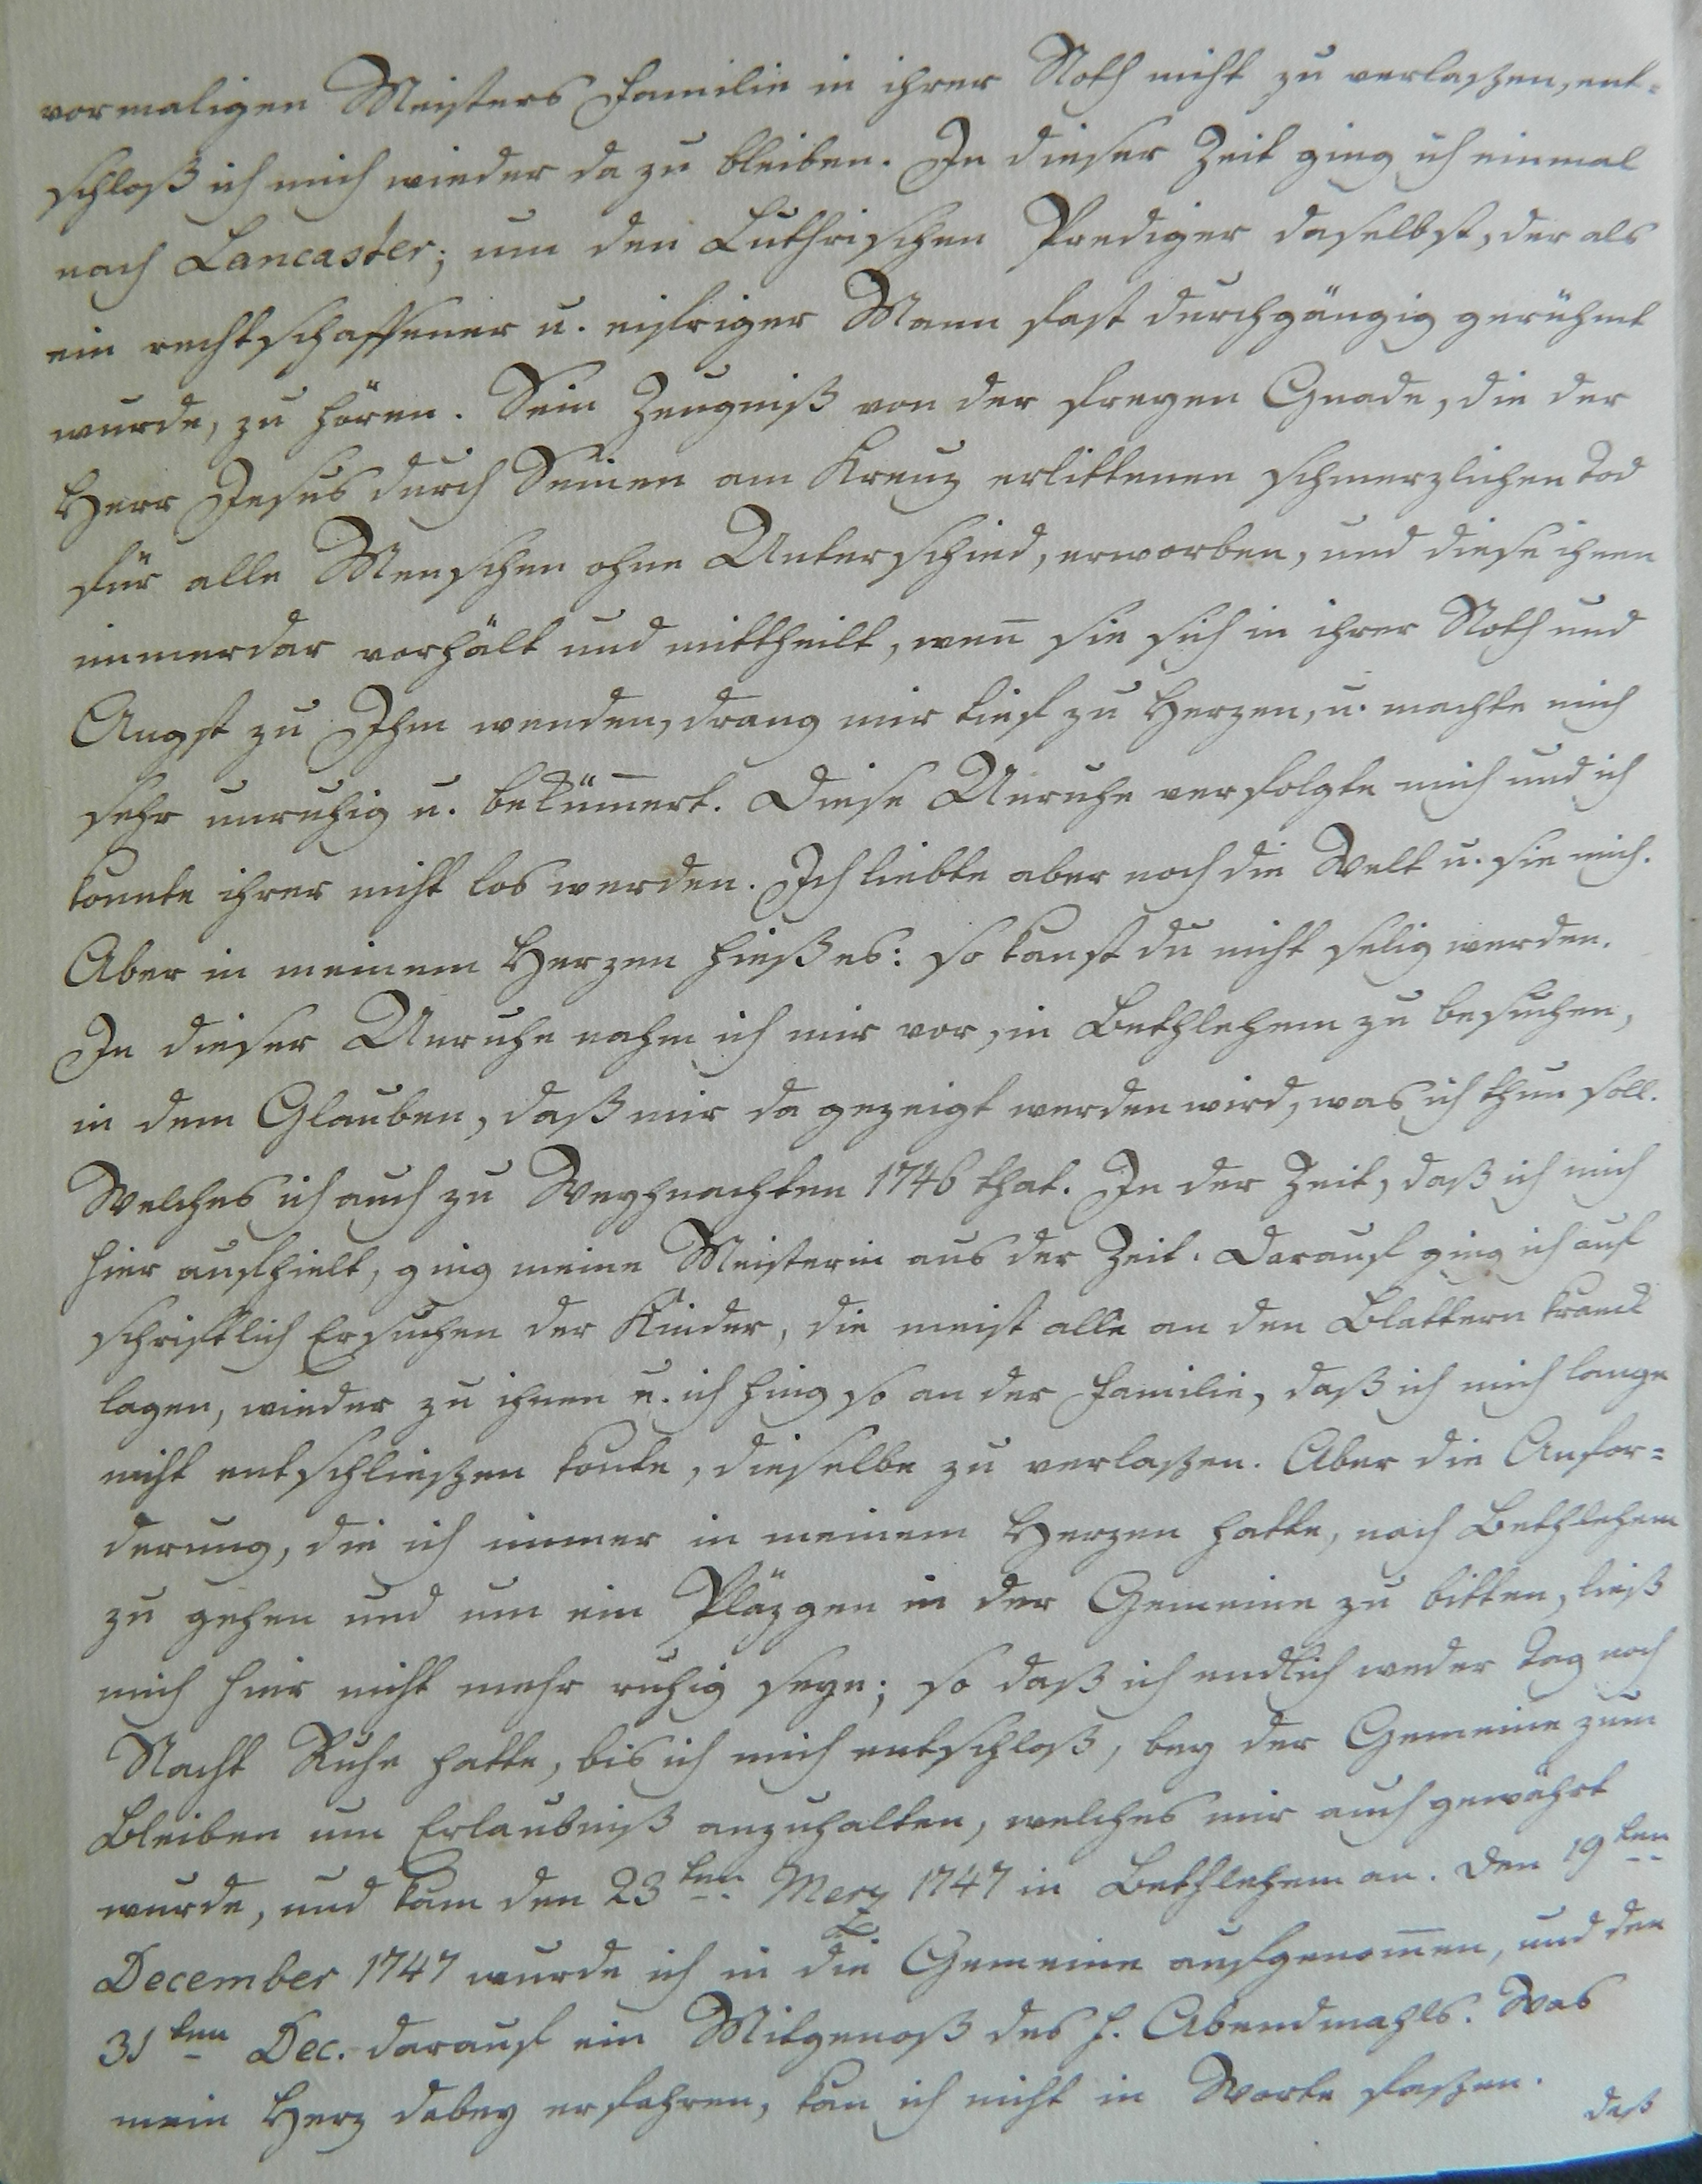 vormaligen Meisters Familie in ihrer Noth nicht zu verlaßen, ent-
schloß ich mich wieder da zu bleiben. In dieser Zeit ging ich einmal
nach Lancaster; um den Luthrischen Prediger daselbst, der als
ein rechtschaffener u. eifriger Mann fast durchgängig gerühmt
wurde, zu hören. Sein Zeugniß von der freyen Gnade, die der
Herr Jesus durch Seinen am Kreuz erlittenen schmerzlichen Tod
für alle Menschen ohne Unterschied, erworben, und diese ihnen
immerdar vorhält und mittheilt, wen̄ sie sich in ihrer Noth und
Angst zu Ihm wenden, drang mir tief zu Herzen, u. machte mich
sehr unruhig u. beküm̄ert. Diese Unruhe verfolgte mich und ich
konnte ihrer nicht los werden. Ich liebte aber noch die Welt u. sie mich.
Aber in meinem Herzen hieß es: so kanst du nicht selig werden.
In dieser Unruhe nahm ich mir vor, in Bethlehem zu besuchen,
in dem Glauben, daß mir da gezeigt werden wird, was ich thun soll.
Welches ich auch zu Weyhnachten 1746 that. In der Zeit, daß ich mich
hier aufhielt, ging meine Meisterin aus der Zeit. Darauf ging ich auf
schriftlich Ersuchen der Kinder, die meist alle an den Blattern kranck
lagen, wieder zu ihnen u. ich hing so an der Familie, daß ich mich lange
nicht entschließen konte, dieselbe zu verlaßen. Aber die Anfor-
derung, die ich immer in meinem Herzen hatte, nach Bethlehem
zu gehen und um ein Pläzgen in der Gemeine zu bitten, ließ
mich hier nicht mehr ruhig seyn; so daß ich endlich weder Tag noch
Nacht Ruhe hatte, bis ich mich entschloß, bey der Gemeine zum
Bleiben um Erlaubniß anzuhalten, welches mir auch gewährt
wurde, und kam den 23ten Merz 1747 in Bethlehem an. Den 19ten
December 1747 wurde ich in die Gemeine aufgenom̄en, und den
31ten Dec. darauf ein Mitgenoß des h. Abendmahls. Was
mein Herz dabey erfahren, kan ich nicht in Worte faßen.
daß